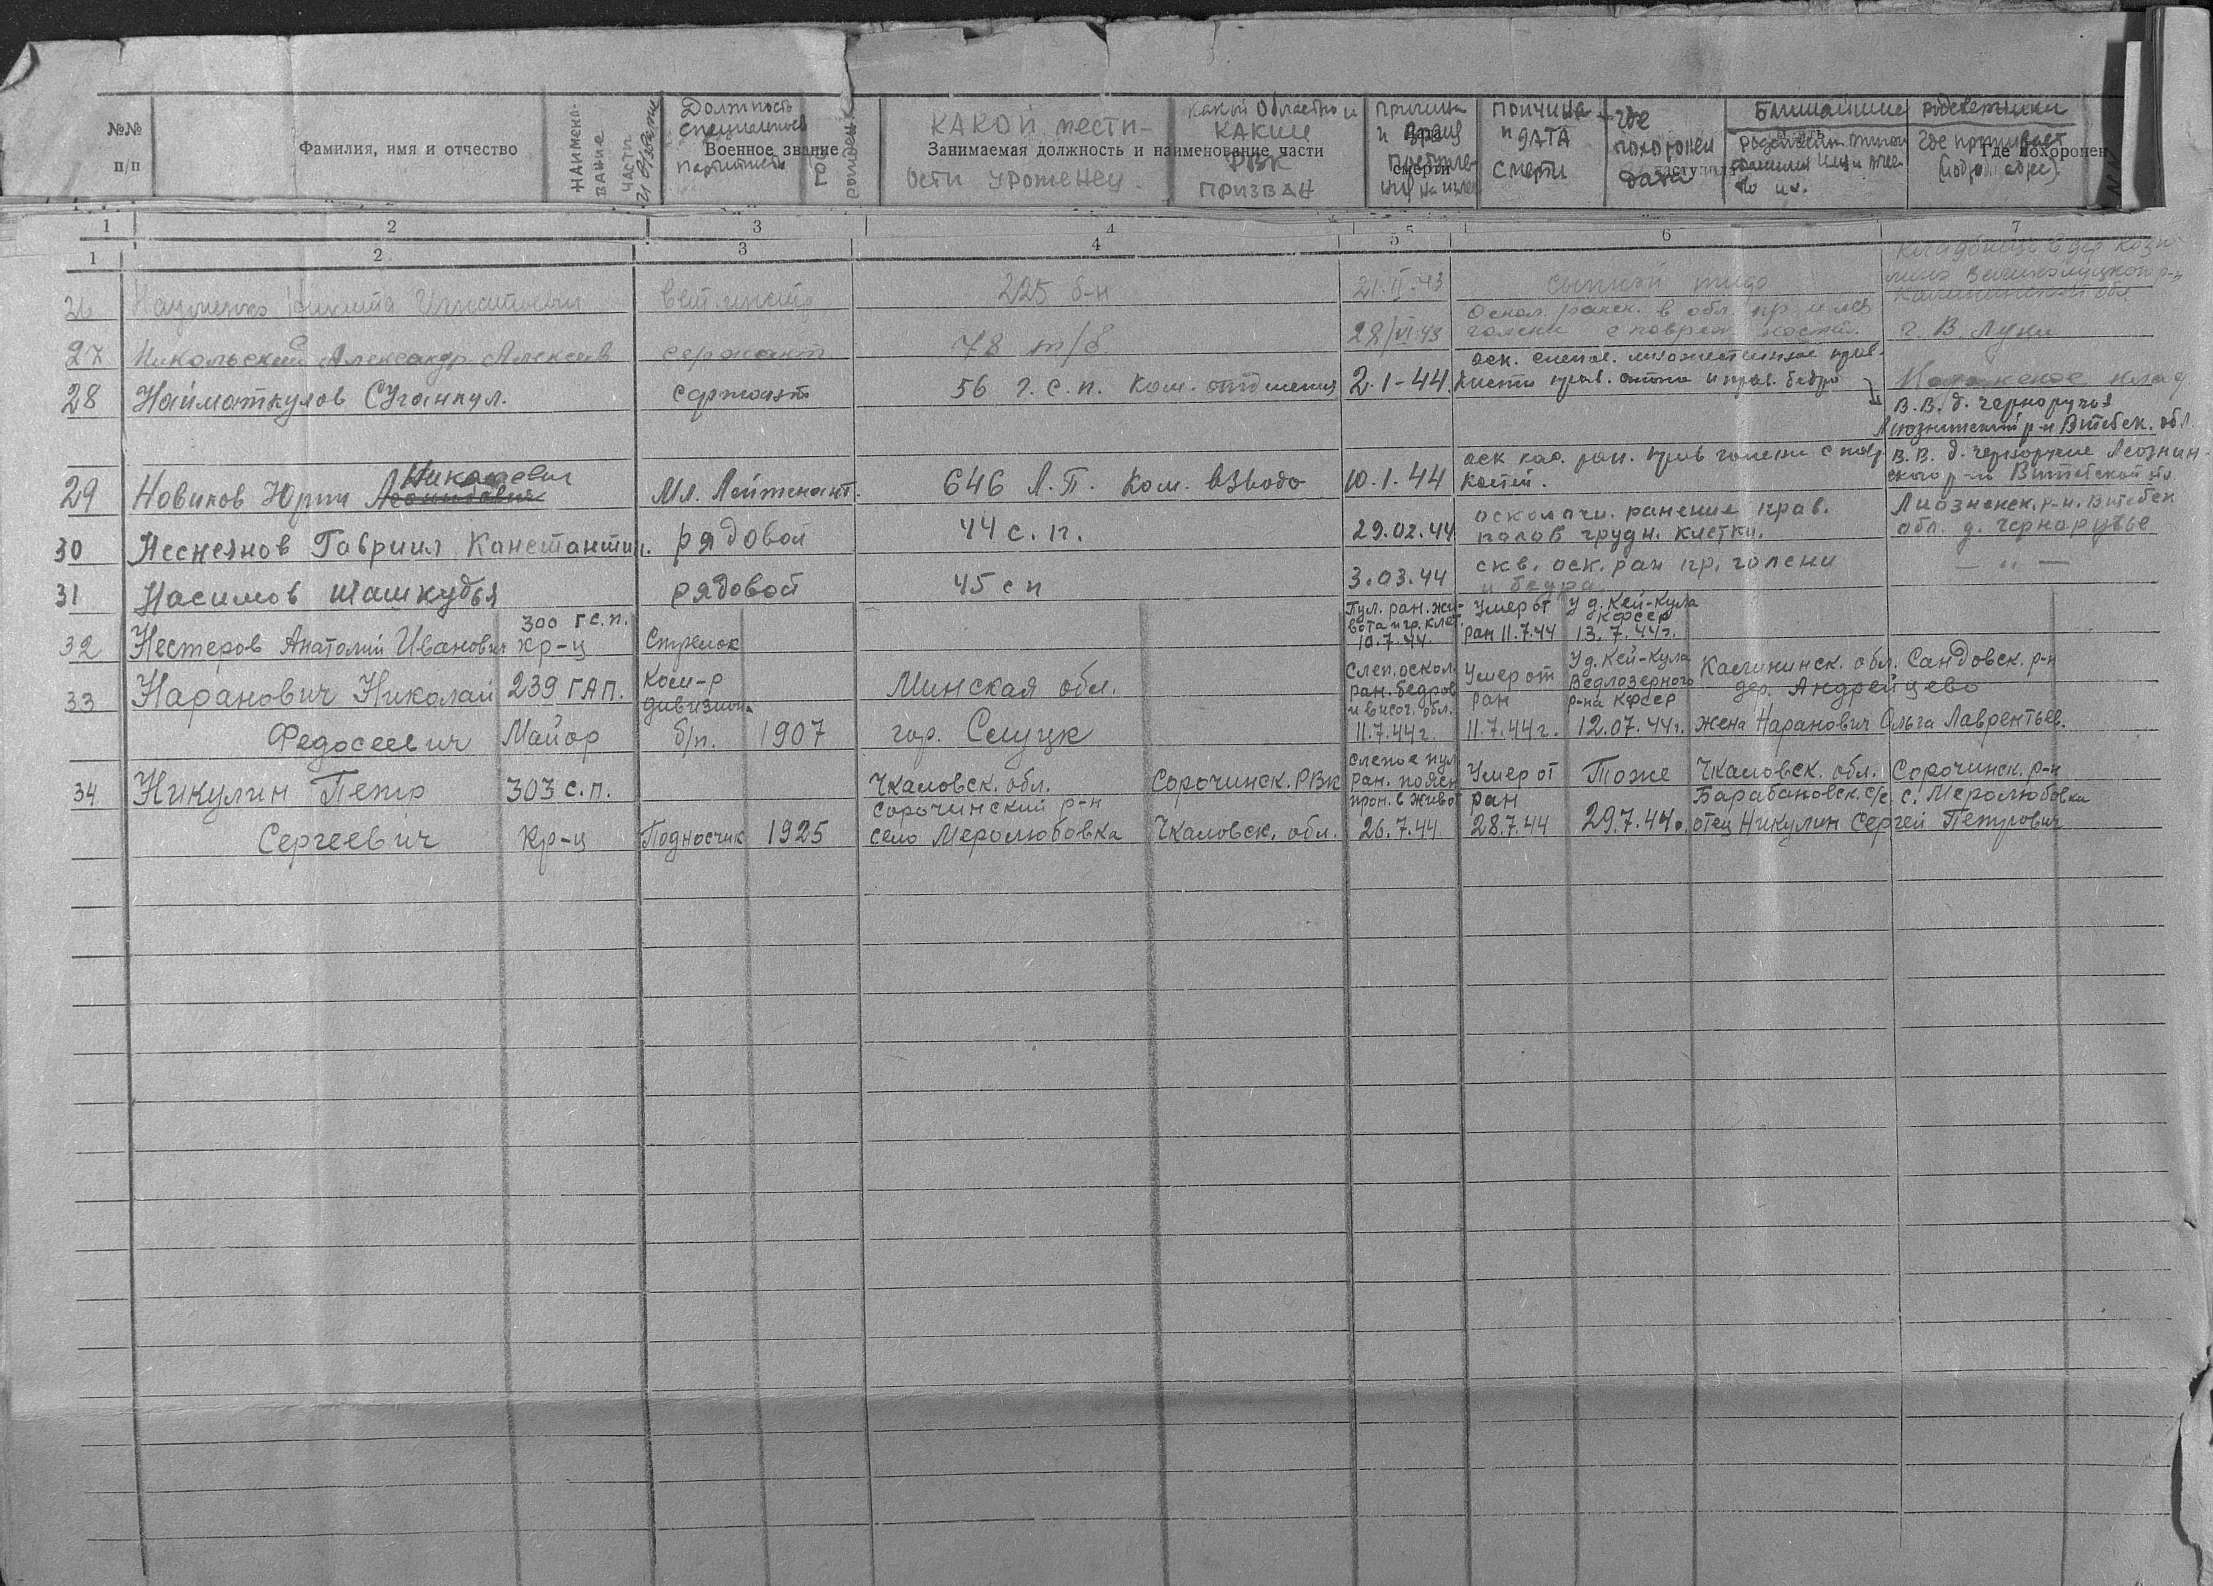 №№ п/п
Фамилия, имя и отчество
Наименование части и звание
Должность специальность партийность
Военное звание
Год рождения
КАКОЙ местности УРОЖЕНЕЦ
Занимаемая должность и наименование части
Какой области и КАКИМ РВК ПРИЗВАН
смерти
ПРИЧИНА и ДАТА смерти
где похоронен дата
Ближайшие родственники
Где проживает
Где похоронен
1 2 3 4 5 6 7
1 2 3 4 5
26 Никита Игнатьевич 225 б-н 21.II.43 сыпной тиф
Великолукского р-н Калининской обл
27 Никольский Александр Алексеев сержант 78 т/б 28/VI.43 Оскол. ранен. в обл. пр голени с повреж костей. г. В. Луки
28 Найматкулов Суганкул. сержант 56 г.с.п. Ком. отделения 2.1-44. оск. слепое. множественное прав. кисти прав. стопы и прав. бедра
В.В. д. Черноручья
Лиозненский р-н Витебск. обл.
29 Новиков Юрий Леонидович Николаевич Мл. Лейтенант. 646 А.П. Ком. взвода 10.1.44 оск ран. прав голени с повр костей. В.В. д. Черноручье Лиозненского р-на Витебской
30 Нескеянов Гавриил Канстантин. рядовой 44 с.п. 29.02.44 осколочн. ранение прав. полов грудн. клетки. Лиозненск. р-н. Витебск обл. д. Чернаручье
31 Насимов Шашкудья рядовой 45 сп 3.03.44 скв. оск. ран пр. голени и бедра — " —
32 Нестеров Анатолий Иванович 300 гс.п. кр-ц Стрелок Пул. ран. живота и гр. клет. 10.7.44. Умер от ран 11.7.44 У д. Кей-Кула КФССР 13.7.44г.
33 Наранович Николай 239 ГАП. Ком-р дивизиона Минская обл. Слеп. оскол. ран. бедров и височ. обл. Умер от ран У д. Кей-Кула Ведлозерного р-на КФССР Калининск. обл. Сандовск. р-н дер. Андрейцево
Федосеевич Майор б/п. 1907 гор. Слуцк 11.7.44г. 11.7.44г. 12.07.44г. жена Наранович Ольга Лаврентьев.
34 Никулин Петр 303 с.п. Чкаловск. обл. Сорочинский р-н Сорочинск. РВК Слепое пул ран. поясн прон. в живот Умер от ран Тоже Чкаловск. обл. Сорочинск. р-н Барабановск. с/с. с. Меролюбовка
Сергеевич Кр-ц Подносчик 1925 село Меролюбовка Чкаловск. обл. 26.7.44 28.7.44 29.7.44. отец Никулин Сергей Петрович